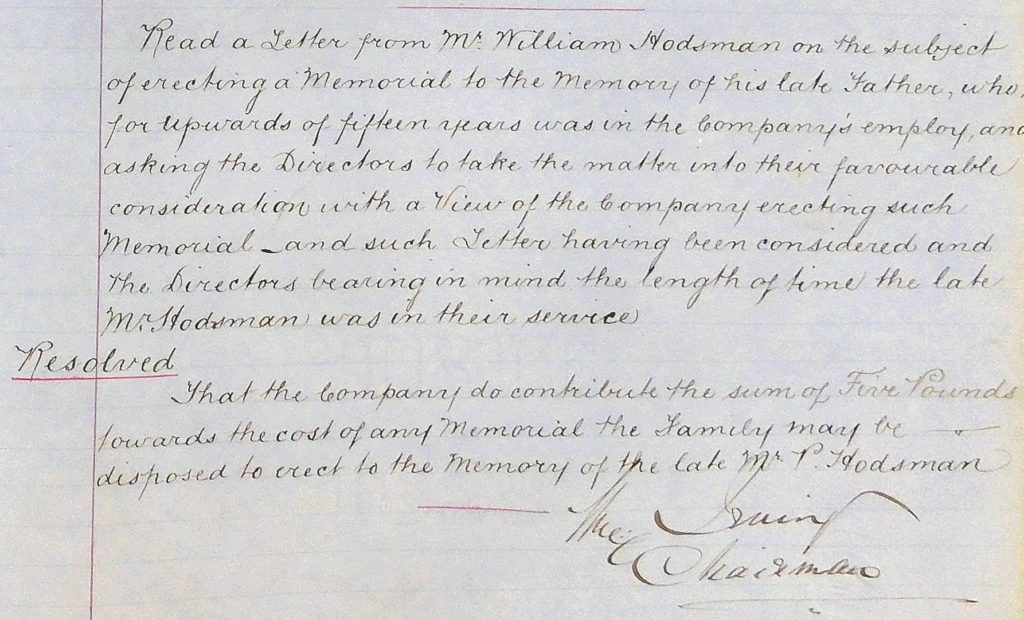 Read a Letter from Mr. William Hodsman on the subject
of erecting a Memorial to the Memory of his late Father, who,
for upwards of fifteen years was in the Company's employ, and
asking the Directors to take the matter into their favourable
consideration with a View of the Company erecting such
Memorial – and such Letter having been considered and
the Directors bearing in mind the length of time the late
Mr. Hodsman was in their service
Resolved
That the Company do contribute the sum of Five Pounds
towards the cost of any Memorial the Family may be —
disposed to erect to the Memory of the late Mr. P. Hodsman
Irving
Chairman